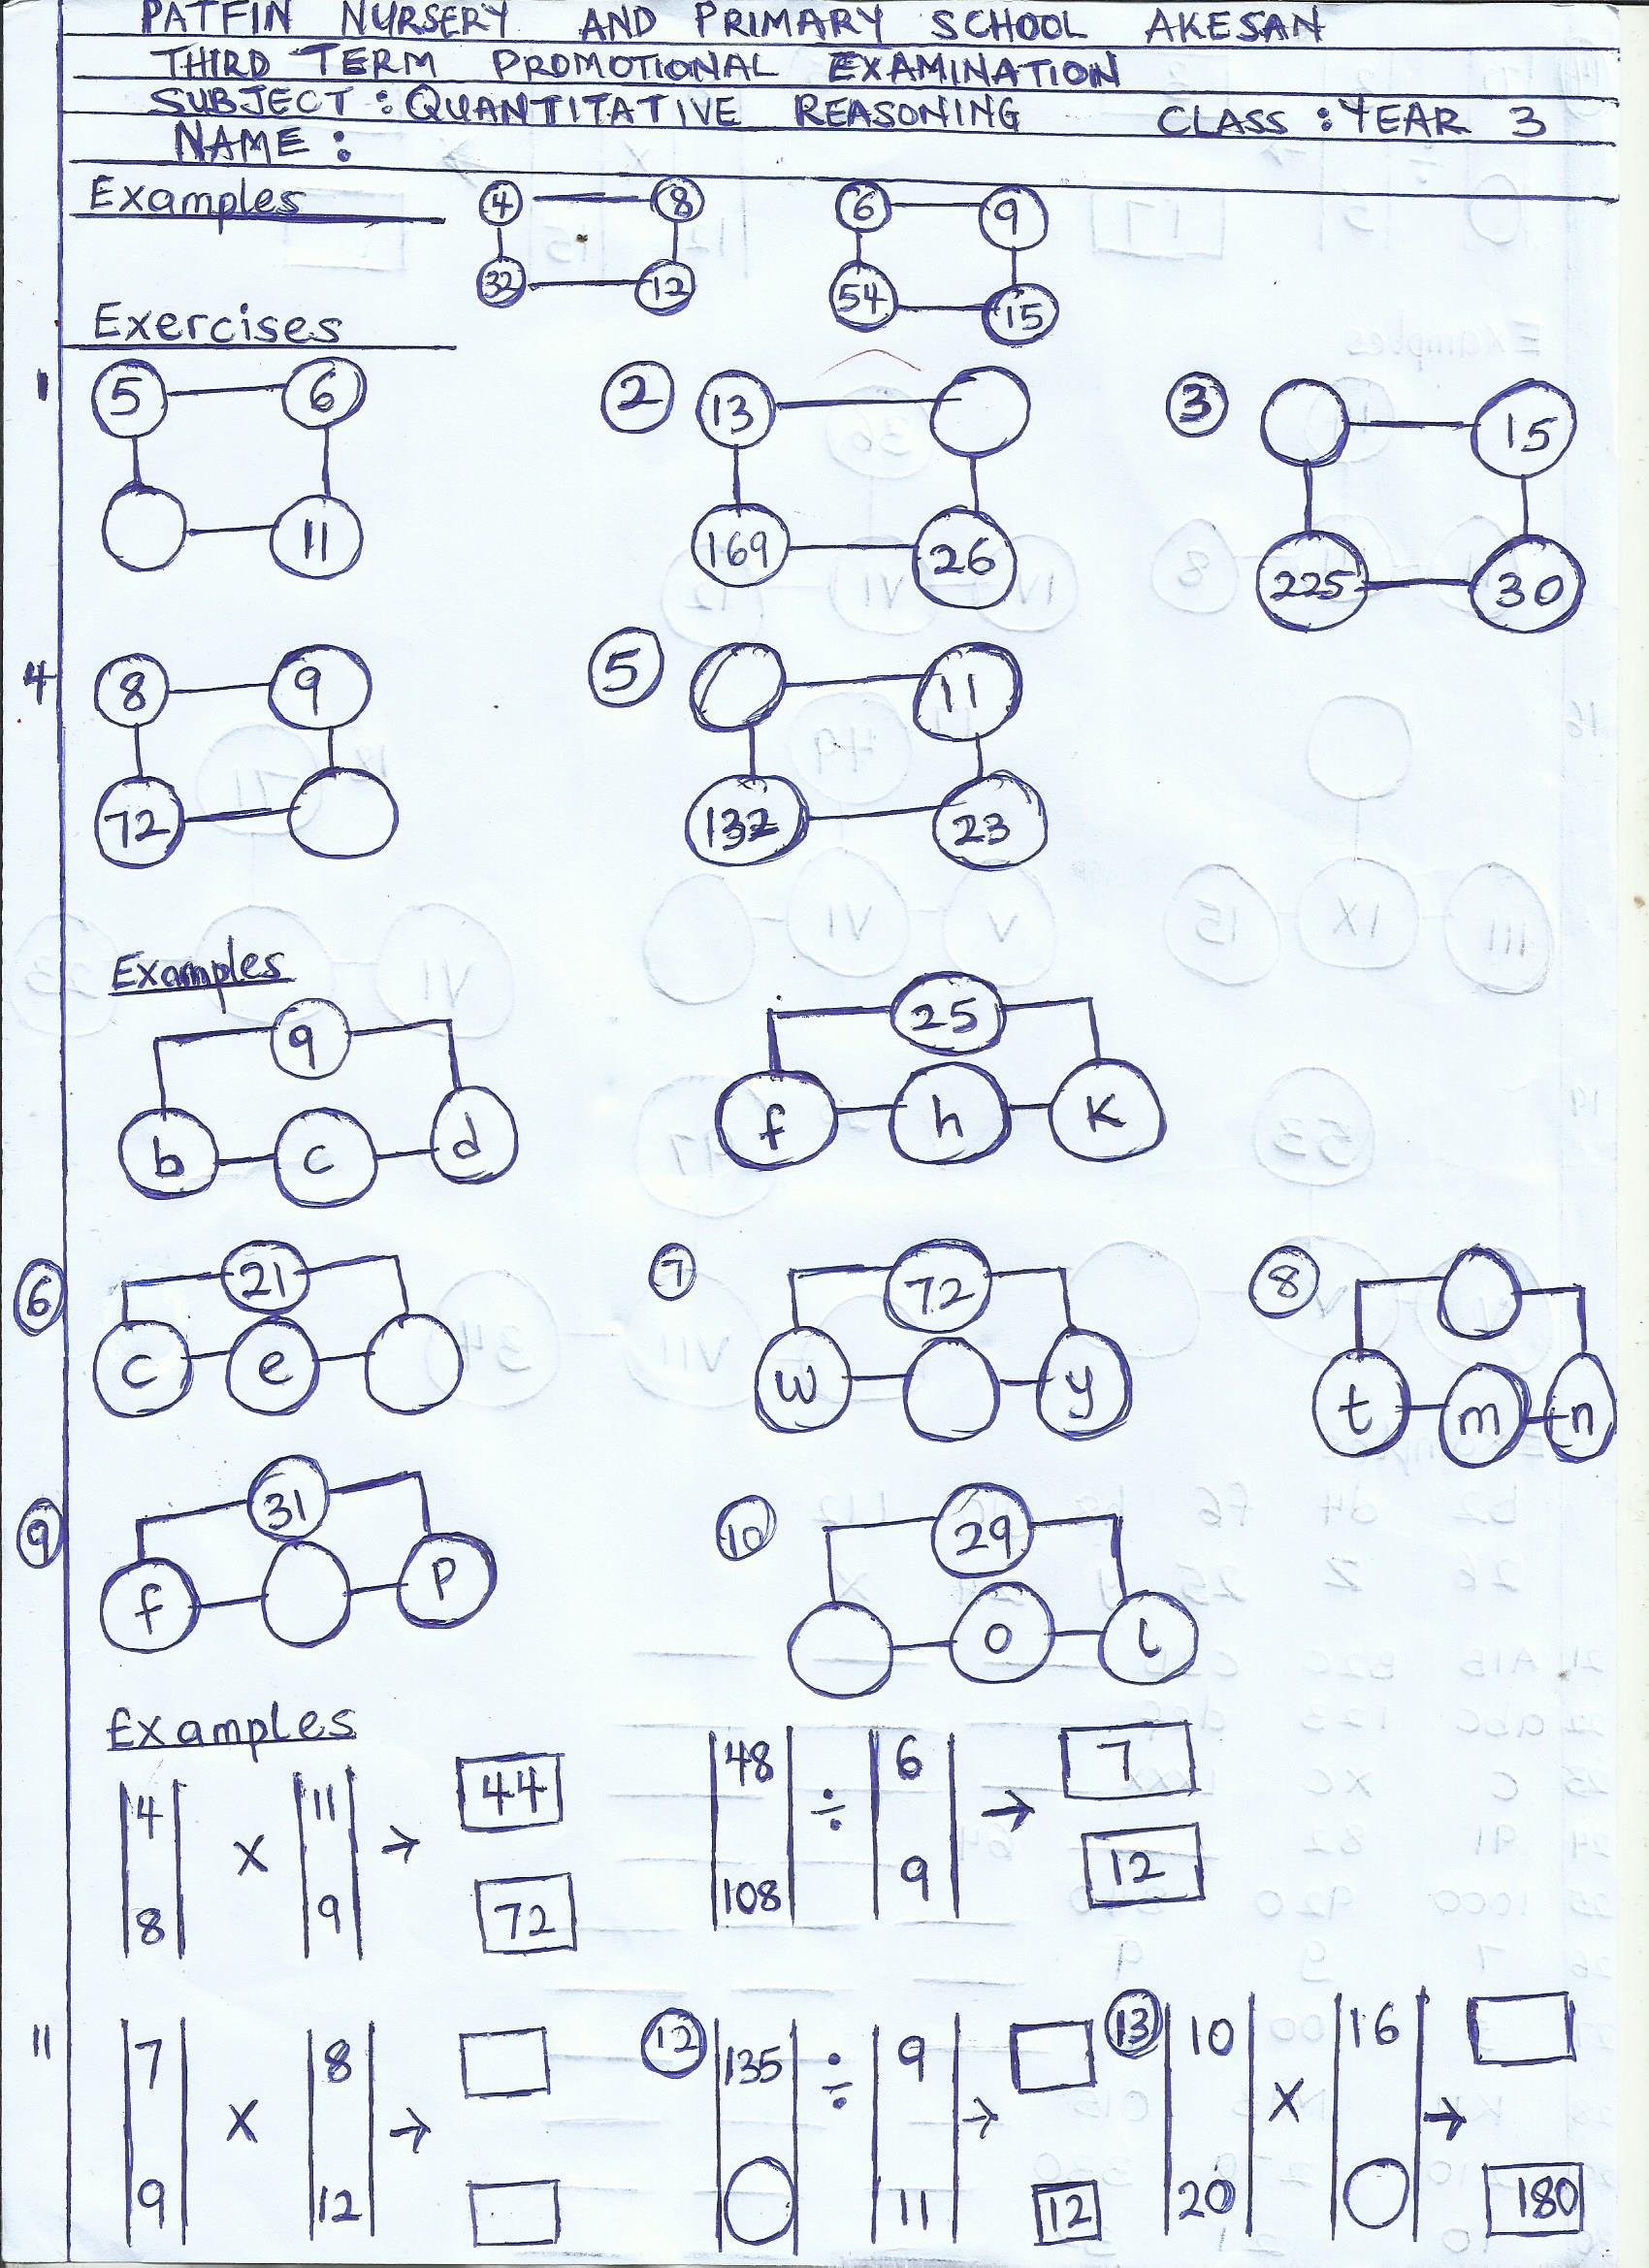 PATFIN NURSERY AND PRIMARY SCHOOL AKESAN
THIRD TERM PROMOTIONAL EXAMINATION
SUBJECT : QUANTITATIVE REASONING CLASS : YEAR 3
NAME :
Examples 4 8 6 9
32 12 54 15
Exercises
1 5 6 2 13 3 15
11 169 26 225 30
4 8 9 5 11
72 132 23
Examples
9 25
b c d f h K
6 21 7 72 8
c e w y t m n
9 31 10 29
f P o l
Examples
4 x 11 → 44 48 ÷ 6 → 7
8 9 72 108 9 12
11 7 x 8 → 12 135 ÷ 9 → 13 10 x 16 →
9 12 11 12 20 180